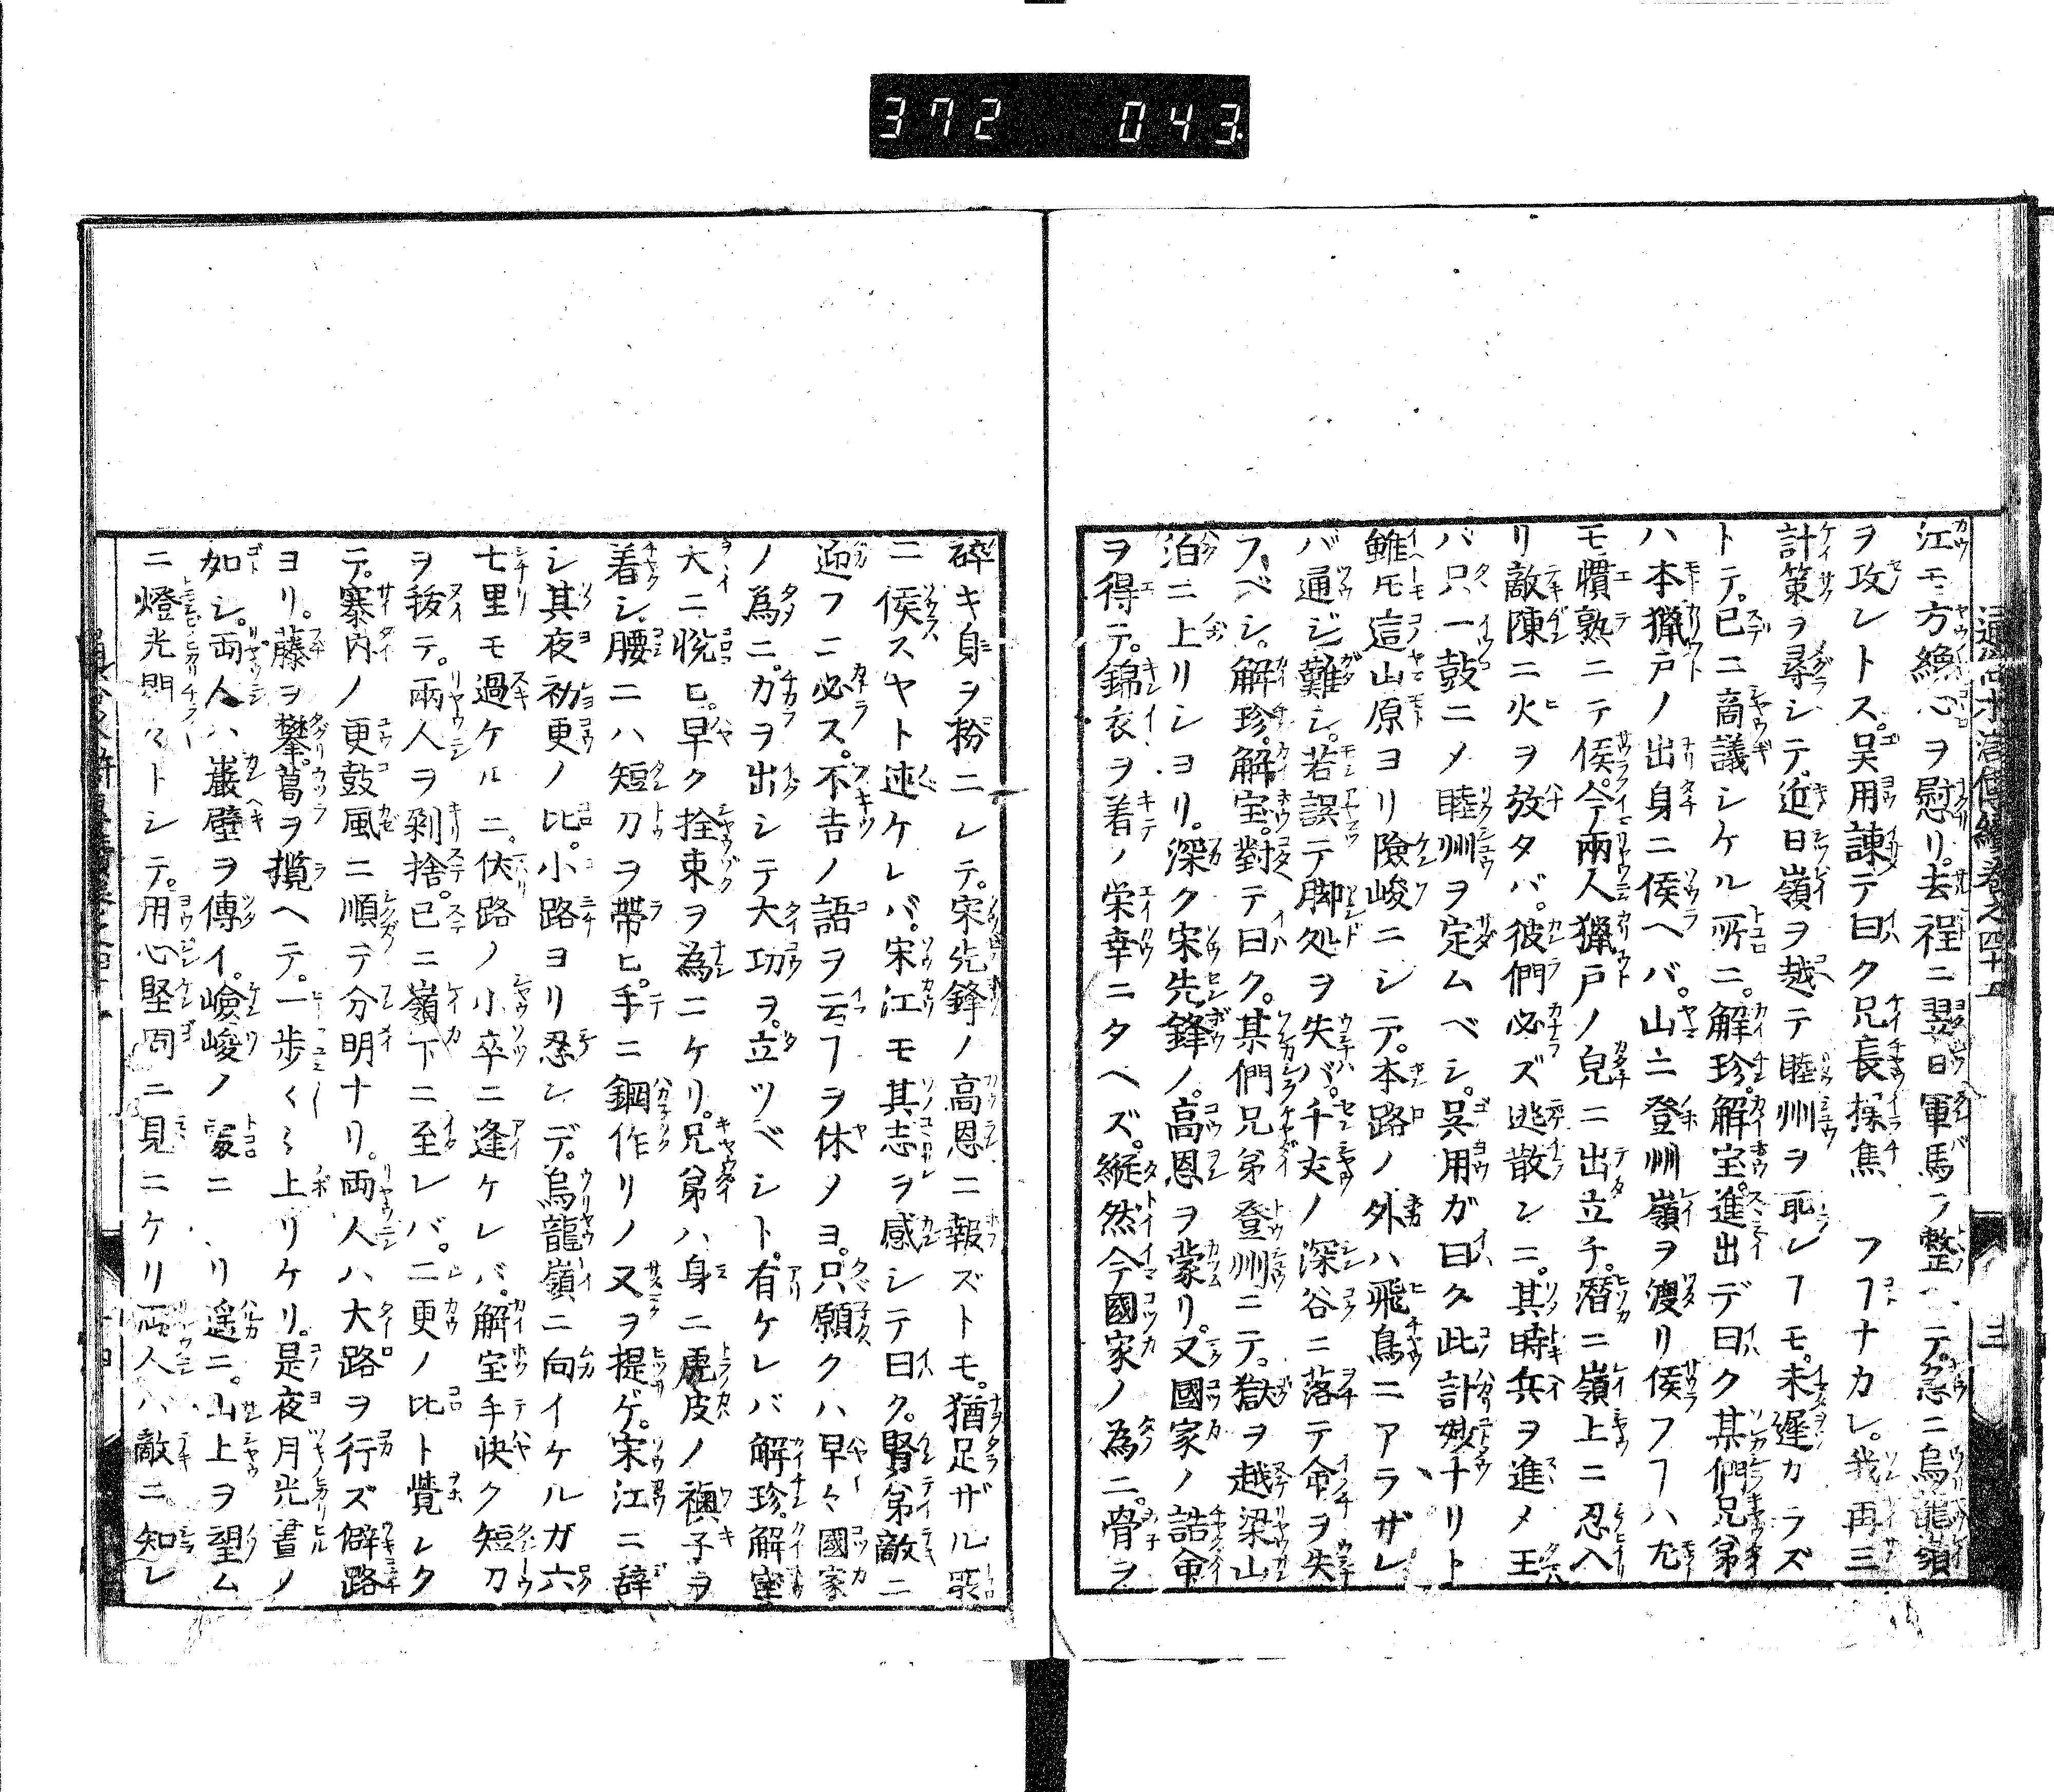 372 043
江モ方纔心ヲ慰リ。去程ニ翌日軍馬ヲ整ヘテ。急ニ烏龍嶺
ヲ攻レトス。吴用諫テ曰ク兄長操焦 フヿナカレ。我再三
計策ヲ尋シテ。近日嶺ヲ越テ睦州ヲ取レヿモ。未遲カラズ
トテ。已ニ商議シケル所ニ。解珍。解宝。進出デ曰ク某們兄弟
ハ本獵戸ノ出身ニ侯ヘバ。山ニ登リ嶺ヲ渡リ侯フヿハ尤
モ慣熟ニテ侯。今兩人獵戸ノ皃ニ出立チ。潜ニ嶺上ニ忍入
リ敵陳ニ火ヲ放タバ。彼們必ズ迯散ンニ。其時兵ヲ進メ玉
バ只一鼓ニメ睦州ヲ定ムベシ。吴用ガ曰ク此計妙ナリト
雖モ這山原ヨリ險峻ニシテ。本路ノ外ハ飛鳥ニアラザレ
バ通ジ難シ。若誤テ脚処ヲ失バ。千丈ノ深谷ニ落テ命ヲ失
フベシ。解珍。解宝。對テ曰ク。某們兄弟登州ニテ。獄ヲ越梁山
泊ニ上リシヨリ。深ク宋先鋒ノ。高恩ヲ蒙リ。又國家ノ誥命
ヲ得テ。錦衣ヲ着ノ栄幸ニタヘズ。縦然今國家ノ為ニ。骨ヲ
碎キ身ヲ粉ニレテ。宋先鋒ノ高恩ニ報ズトモ。猶足ザル所
ニ侯スヤト述ケレバ。宋江モ其志ヲ感シテ曰ク。賢弟敵ニ
逈フニ必ス。不吉ノ語ヲ云フヲ休メヨ。只願クハ早々國家
ノ為ニ。力ヲ出シテ大功ヲ。立ツベシト。有ケレバ解珍。解宝
大ニ悦ヒ。早ク拴束ヲ為ニケリ。兄弟ハ身ニ虎皮ノ襖子ヲ
着シ。腰ニハ短刀ヲ帶ヒ。手ニ鋼作リノ叉ヲ提ゲ。宋江ニ辞
シ其夜初更ノ比。小路ヨリ忍レデ。烏龍嶺ニ向イケルガ六
七里モ過ケルニ。伏路ノ小卒ニ逢ケレバ。解宝手快ク短刀
ヲ抜テ。兩人ヲ剁捨。已ニ嶺下ニ至レバ。二更ノ比ト覺レク
テ。寨内ノ更鼓風ニ順テ分明ナリ。両人ハ大路ヲ行ズ僻路
ヨリ。藤ヲ攀。葛ヲ攬ヘテ。一歩〱上リケリ。是夜月光晝ノ
如シ。両人ハ巌壁ヲ傳イ。嶮峻ノ處ニ リ遥ニ。山上ヲ望ム
ニ燈光閃々トシテ。用心堅固ニ見ニケリ両人ハ敵ニ知レ